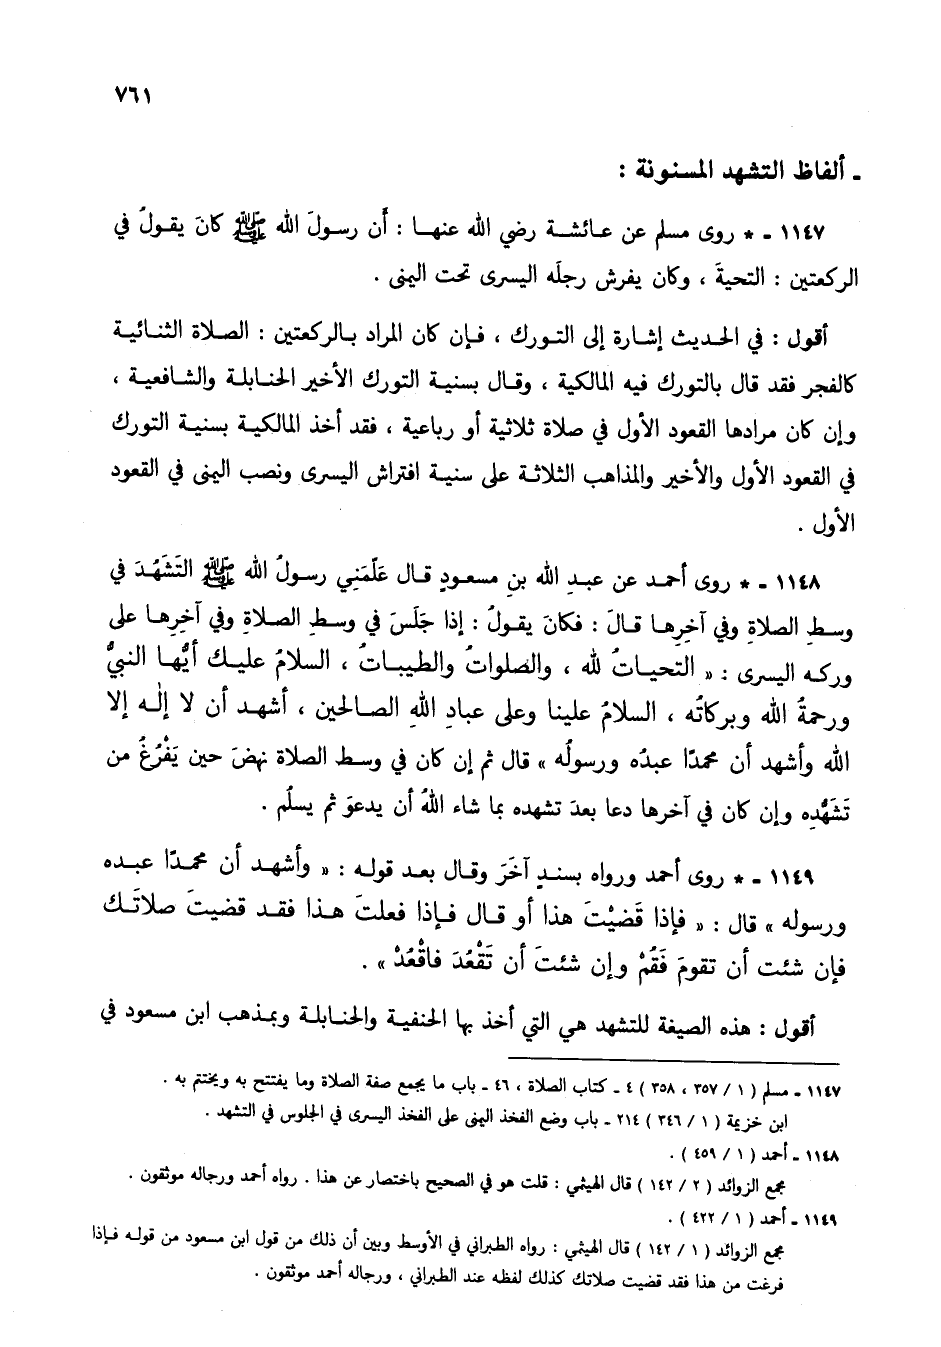 ٧٦١
ـ ألفاظ التشهد المسنونة :
١١٤٧ ـ * روى مسلم عن عائشة رضي الله عنها : أَن رسولَ الله ﷺ كانَ يقولُ في
الركعتين : التحيةَ ، وكان يفرش رجلَه اليسرى تحت اليمنى .
أقول : في الحديث إشارة إلى التورك ، فإن كان المراد بالركعتين : الصلاة الثنائية
كالفجر فقد قال بالتورك فيه المالكية ، وقال بسنية التورك الأخير الحنابلة والشافعية ،
وإن كان مرادها القعود الأول في صلاة ثلاثية أو رباعية ، فقد أخذ المالكية بسنية التورك
في القعود الأول والأخير والمذاهب الثلاثة على سنية افتراش اليسرى ونصب اليمنى في القعود
الأول .
١١٤٨ ـ * روى أحمد عن عبدِ الله بنِ مسعودٍ قال عَلَّمَني رسولُ الله ﷺ التَشَهُدَ في
وسطِ الصلاةِ وفي آخرِها قالَ : فكانَ يقولُ : إذا جَلَسَ في وسطِ الصلاةِ وفي آخِرِها على
وركه اليسرى : « التحياتُ لله ، والصلواتُ والطيباتُ ، السلامُ عليك أيُّها النبيُّ
ورحمةُ الله وبركاتُه ، السلامُ علينا وعلى عبادِ اللهِ الصالحين ، أشهد أن لا إلٰه إلا
الله وأشهد أن محمدًا عبدُه ورسولُه » قال ثم إن كان في وسط الصلاة نهضَ حين يَفْرُغُ من
تَشَهُّدِه وإن كان في آخرها دعا بعدَ تشهده بما شاء اللهُ أن يدعوَ ثم يسلُم .
١١٤٩ ـ * روى أحمد ورواه بسندٍ آخَرَ وقال بعد قوله : « وأشهد أن محمدًا عبده
ورسوله » قال : « فإذا قَضيْتَ هذا أو قال فإذا فعلتَ هذا فقد قضيتَ صلاتَك
فإن شئت أن تقومَ فَقُمْ وإن شئتَ أن تَقْعُدَ فاقْعُدْ » .
أقول : هذه الصيغة للتشهد هي التي أخذ بها الحنفية والحنابلة وبمذهب ابن مسعود في
١١٤٧ ـ مسلم ( ١ / ٣٥٧ ، ٣٥٨ ) ٤ ـ كتاب الصلاة ، ٤٦ ـ باب ما يجمع صفة الصلاة وما يفتتح به ويختتم به .
ابن خزيمة ( ١ / ٣٤٦ ) ٢١٤ ـ باب وضع الفخذ اليمنى على الفخذ اليسرى في الجلوس في التشهد .
١١٤٨ ـ أحمد ( ١ / ٤٥٩ ) .
مجمع الزوائد ( ٢ / ١٤٢ ) قال الهيثمي : قلت هو في الصحيح باختصار عن هذا . رواه أحمد ورجاله موثقون .
١١٤٩ ـ أحمد ( ١ / ٤٢٢ ) .
مجمع الزوائد ( ١ / ١٤٢ ) قال الهيثمي : رواه الطبراني في الأوسط وبين أن ذلك من قول ابن مسعود من قوله فإذا
فرغت من هذا فقد قضيت صلاتك كذلك لفظه عند الطبراني ، ورجاله أحمد موثقون .